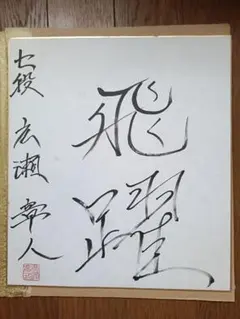 飛躍
七段 広瀬章人